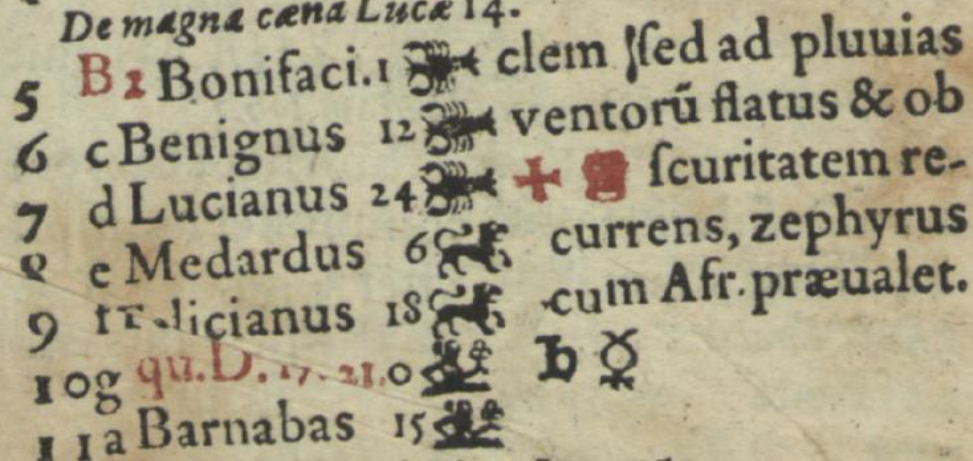 De magna cæna Lucæ 14.
5 B 2 Bonifaci. 1 clem ſſed ad pluuias
6 c Benignus 12 ventorū flatus & ob
7 d Lucianus 24 ſcuritatem re-
8 e Medardus 6 currens, zephyrus
9 f licianus 18 cum Afr. præualet.
10 g qu. D. 17. 21. 0 ♄ ☿
11 a Barnabas 15